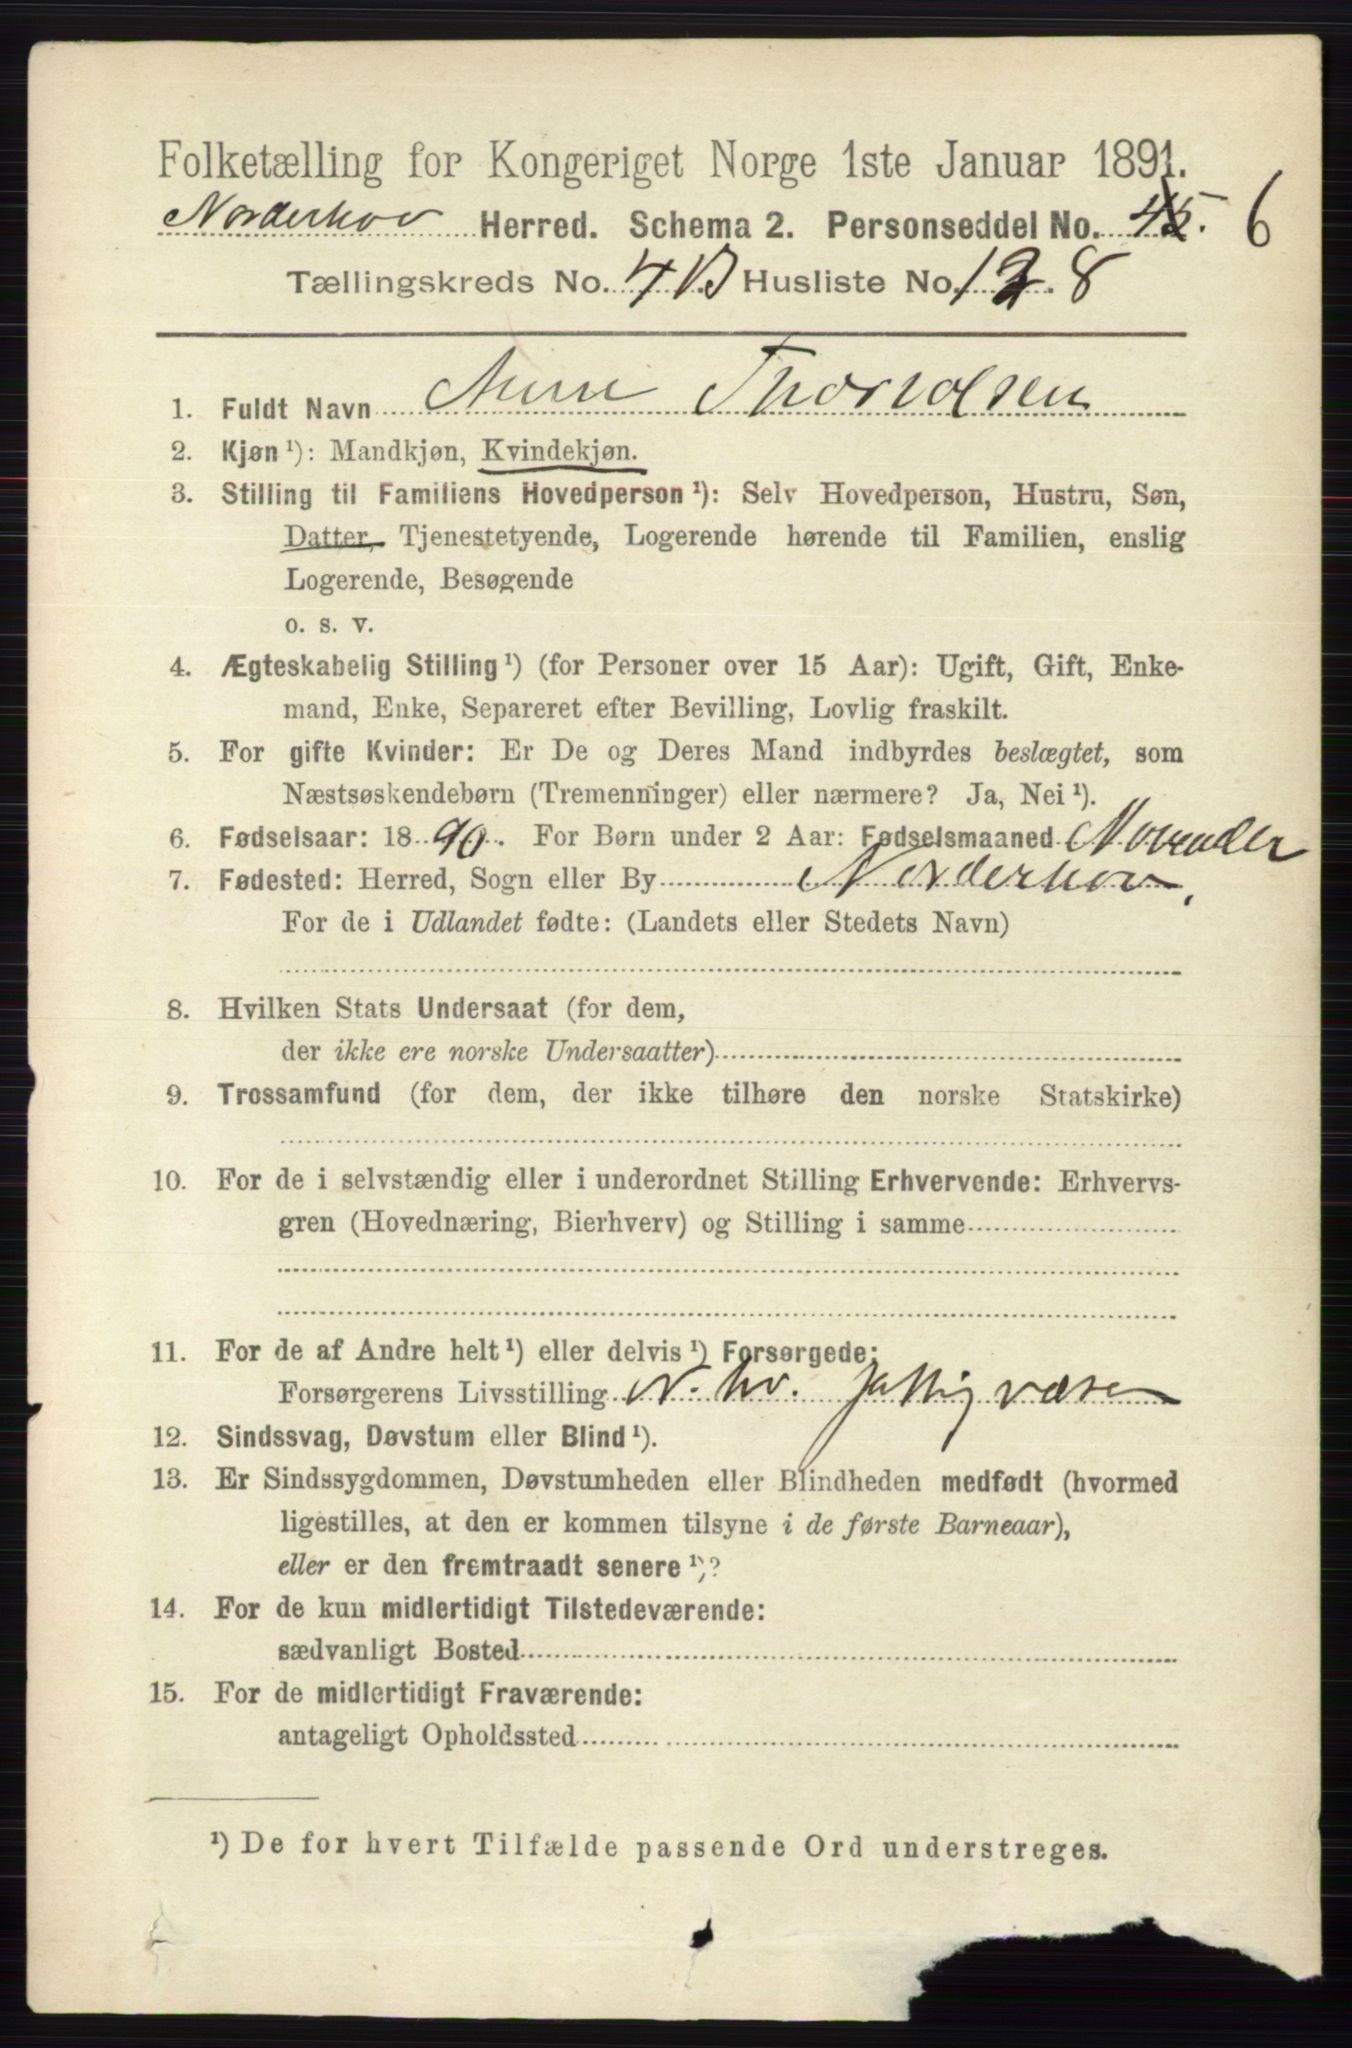 Folketælling for Kongeriget Norge 1ste Januar 1891.
Norderhov Herred. Schema 2. Personseddel No. 45. 6
Tællingskreds No. 4B Husliste No. 12. 8
1. Fuldt Navn Anne Thorvaldsen
2. Kjøn ¹): Mandkjøn, Kvindekjøn.
3. Stilling til Familiens Hovedperson ¹): Selv Hovedperson, Hustru, Søn,
Datter, Tjenestetyende, Logerende hørende til Familien, enslig
Logerende, Besøgende
o. s. v.
4. Ægteskabelig Stilling ¹) (for Personer over 15 Aar): Ugift, Gift, Enke-
mand, Enke, Separeret efter Bevilling, Lovlig fraskilt.
5. For gifte Kvinder: Er De og Deres Mand indbyrdes beslægtet, som
Næstsøskendebørn (Tremenninger) eller nærmere? Ja, Nei ¹).
6. Fødselsaar: 1890. For Børn under 2 Aar: Fødselsmaaned November
7. Fødested: Herred, Sogn eller By Norderhov,
For de i Udlandet fødte: (Landets eller Stedets Navn)
8. Hvilken Stats Undersaat (for dem,
der ikke ere norske Undersaatter)
9. Trossamfund (for dem, der ikke tilhøre den norske Statskirke)
10. For de i selvstændig eller i underordnet Stilling Erhvervende: Erhvervs-
gren (Hovednæring, Bierhverv) og Stilling i samme
11. For de af Andre helt ¹) eller delvis ¹) Forsørgede:
Forsørgerens Livsstilling N. hv. fattigvæsen
12. Sindssvag, Døvstum eller Blind ¹).
13. Er Sindssygdommen, Døvstumheden eller Blindheden medfødt (hvormed
ligestilles, at den er kommen tilsyne i de første Barneaar),
eller er den fremtraadt senere ¹)?
14. For de kun midlertidigt Tilstedeværende:
sædvanligt Bosted
15. For de midlertidigt Fraværende:
antageligt Opholdssted
¹) De for hvert Tilfælde passende Ord understreges.